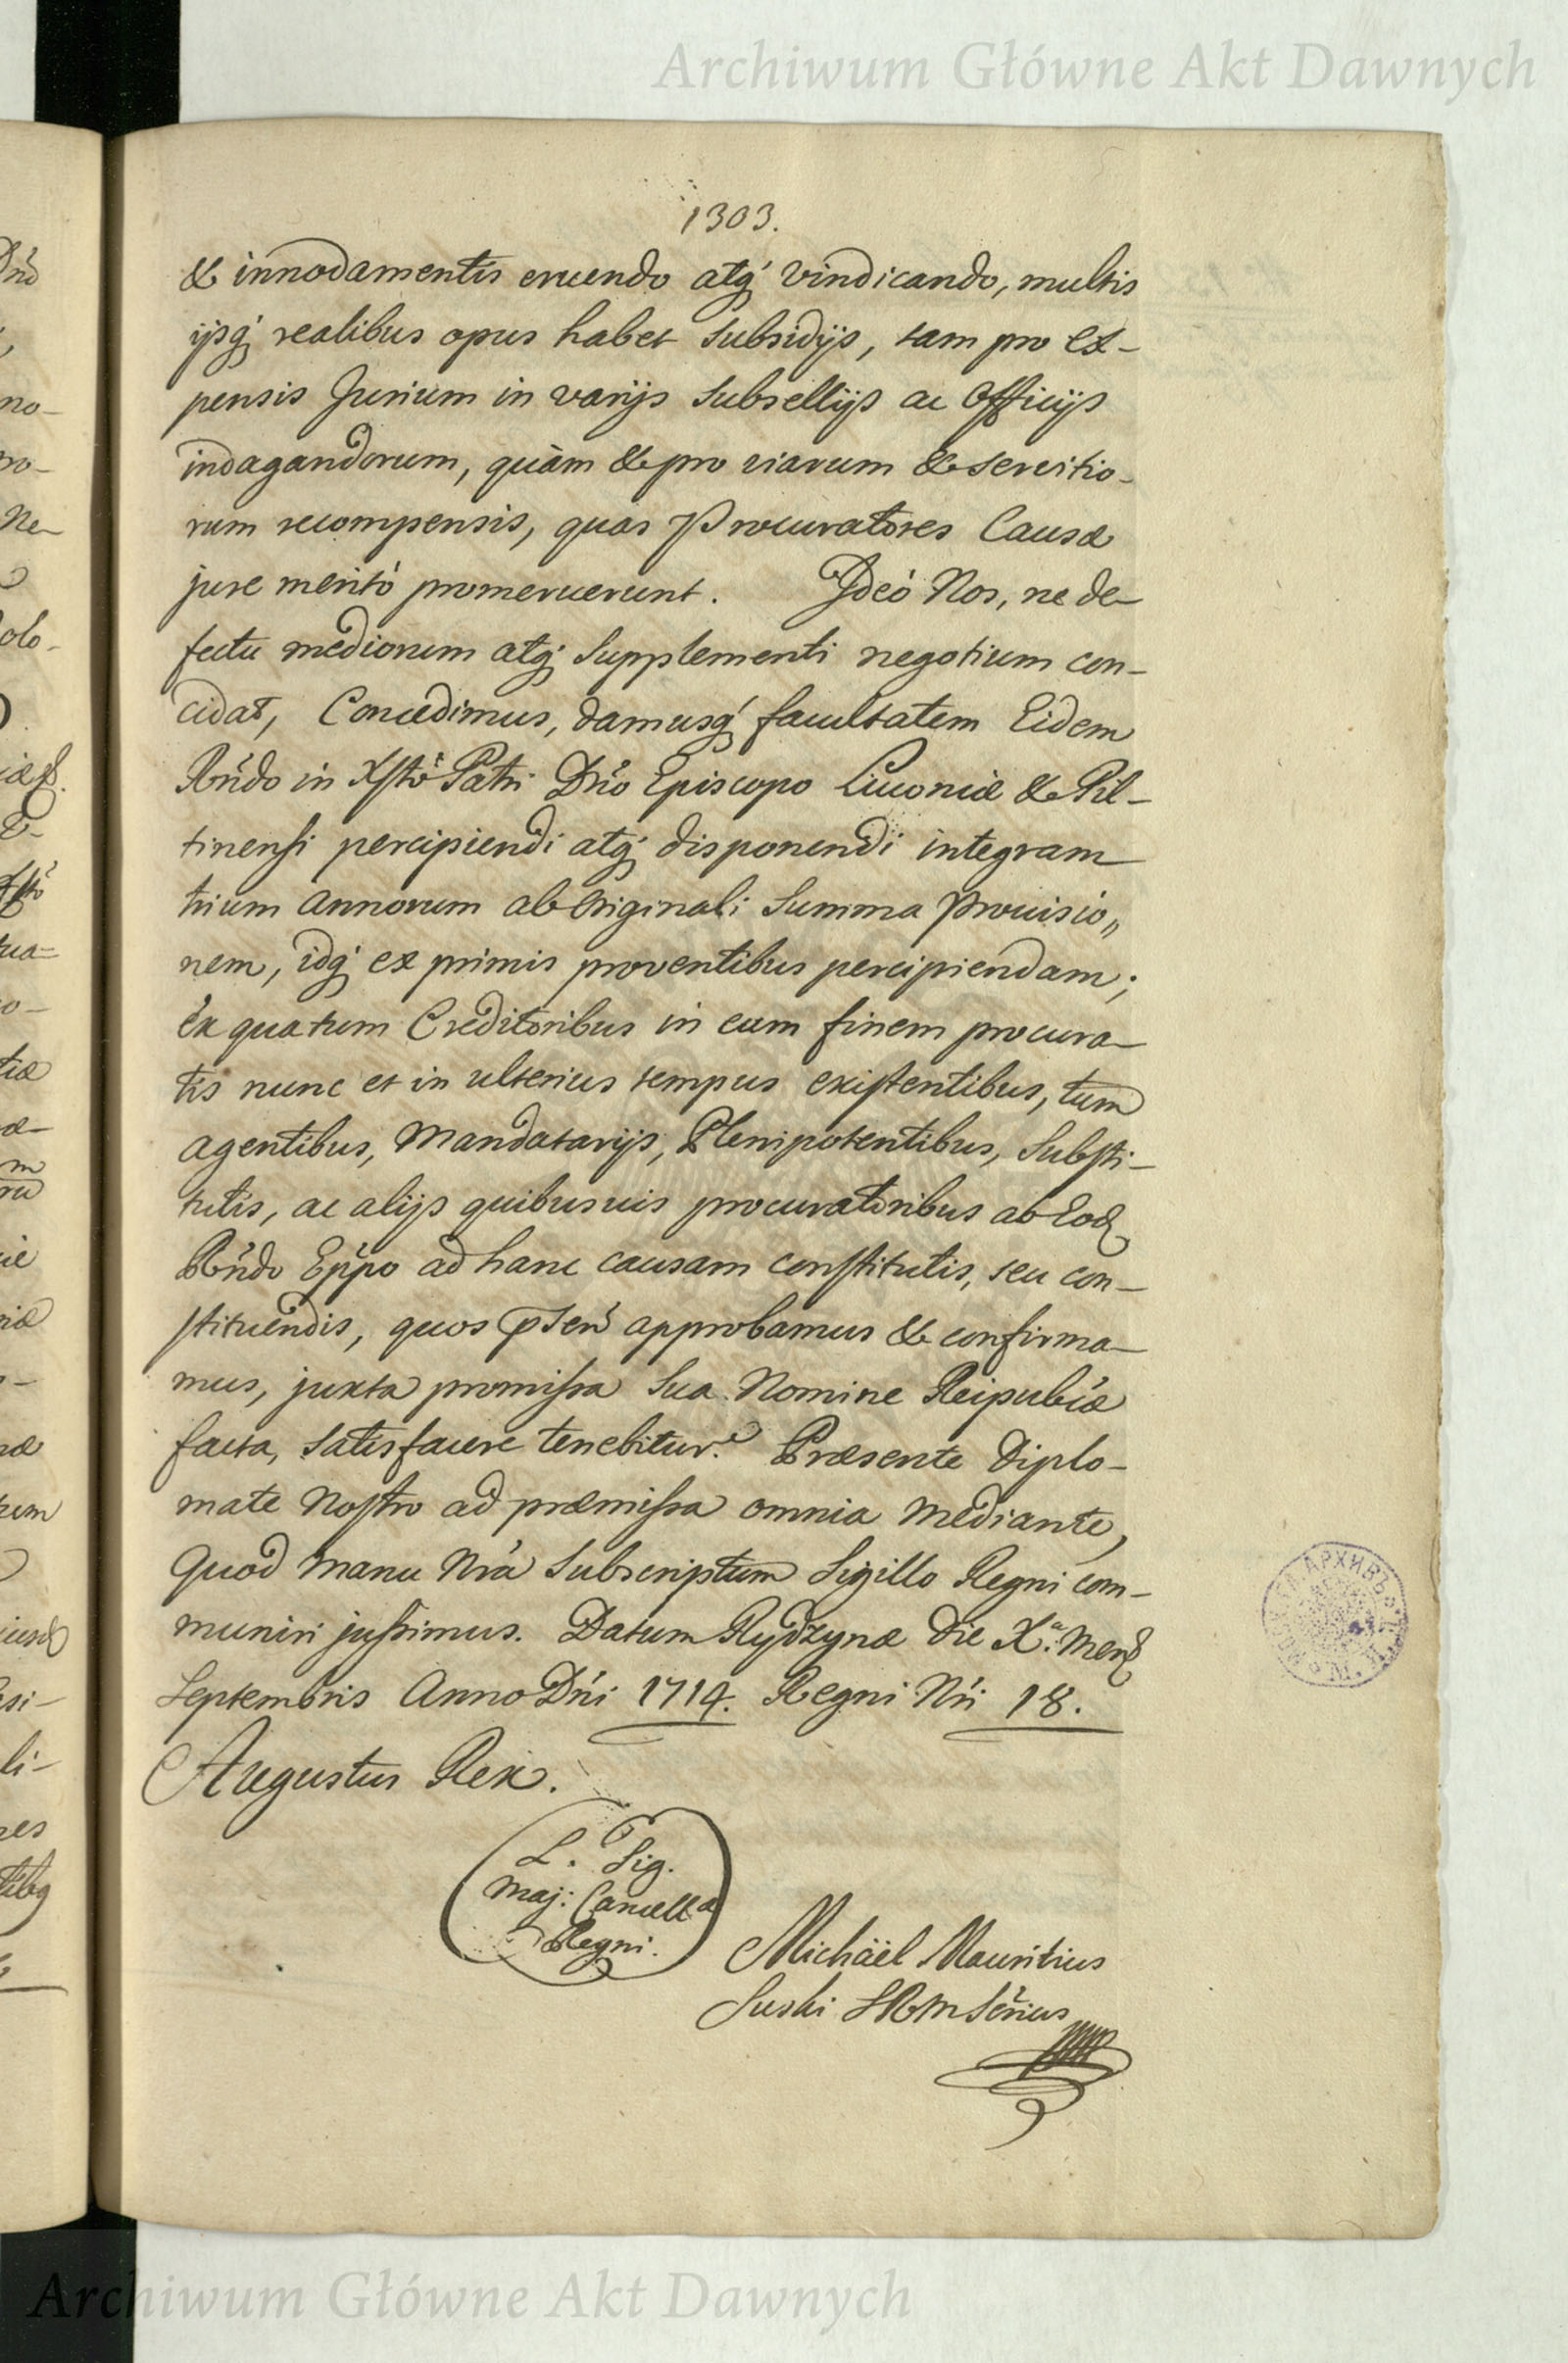 Archiwum Główne Akt Dawnych
1303.
& innodamentis eruendo atq́ vindicando, multis
ijsq́ realibus opus habet subsidijs, tam pro ex-
pensis Jurium in varijs Subsellijs ac Officijs
indagandorum, quàm & pro viarum & servitio-
rum recompensis, quas Procuratores Causæ
jure meritò promeruerunt. Ideò Nos, ne de-
fectu mediorum atq́ Supplementi negotium con-
cidat, Concedimus, damusq́ facultatem Eidem
Rńdo in Xstō Patri Dńo Episcopo Livoniæ & Pil-
tinensi percipiendi atq́ disponendi integram
trium Annorum ab Originali Summa Provisio„
nem, idq́ ex primis proventibus percipiendam;
Ex qua tum Creditoribus in eum finem procura-
tis nunc et in ulterius tempus existentibus, tum
Agentibus, Mandatarijs, Plenipotentibus, Substi-
tutis, ac alijs quibusvis procuratoribus ab Eod
Rńdo Eṕpo ad hanc causam constitutis, seu con-
stituendis, quos pśten approbamus & confirma-
mus, juxta promissa Sua Nomine Reipubĺæ
facta, satisfacere tenebitur. Præsente Diplo-
mate Nostro ad præmissa omnia mediante,
Quod Manu Nrá Subscriptum Sigillo Regni com-
muniri jussimus. Datum Rydzynæ Die Xa. Mens
Septembris Anno Dńi 1714. Regni Nri 18.
Augustus Rex.
L. Sig.
Maj: Cancella
Regni.
Michäel Mauritius
Suski SRM Sĕrius
Archiwum Główne Akt Dawnych